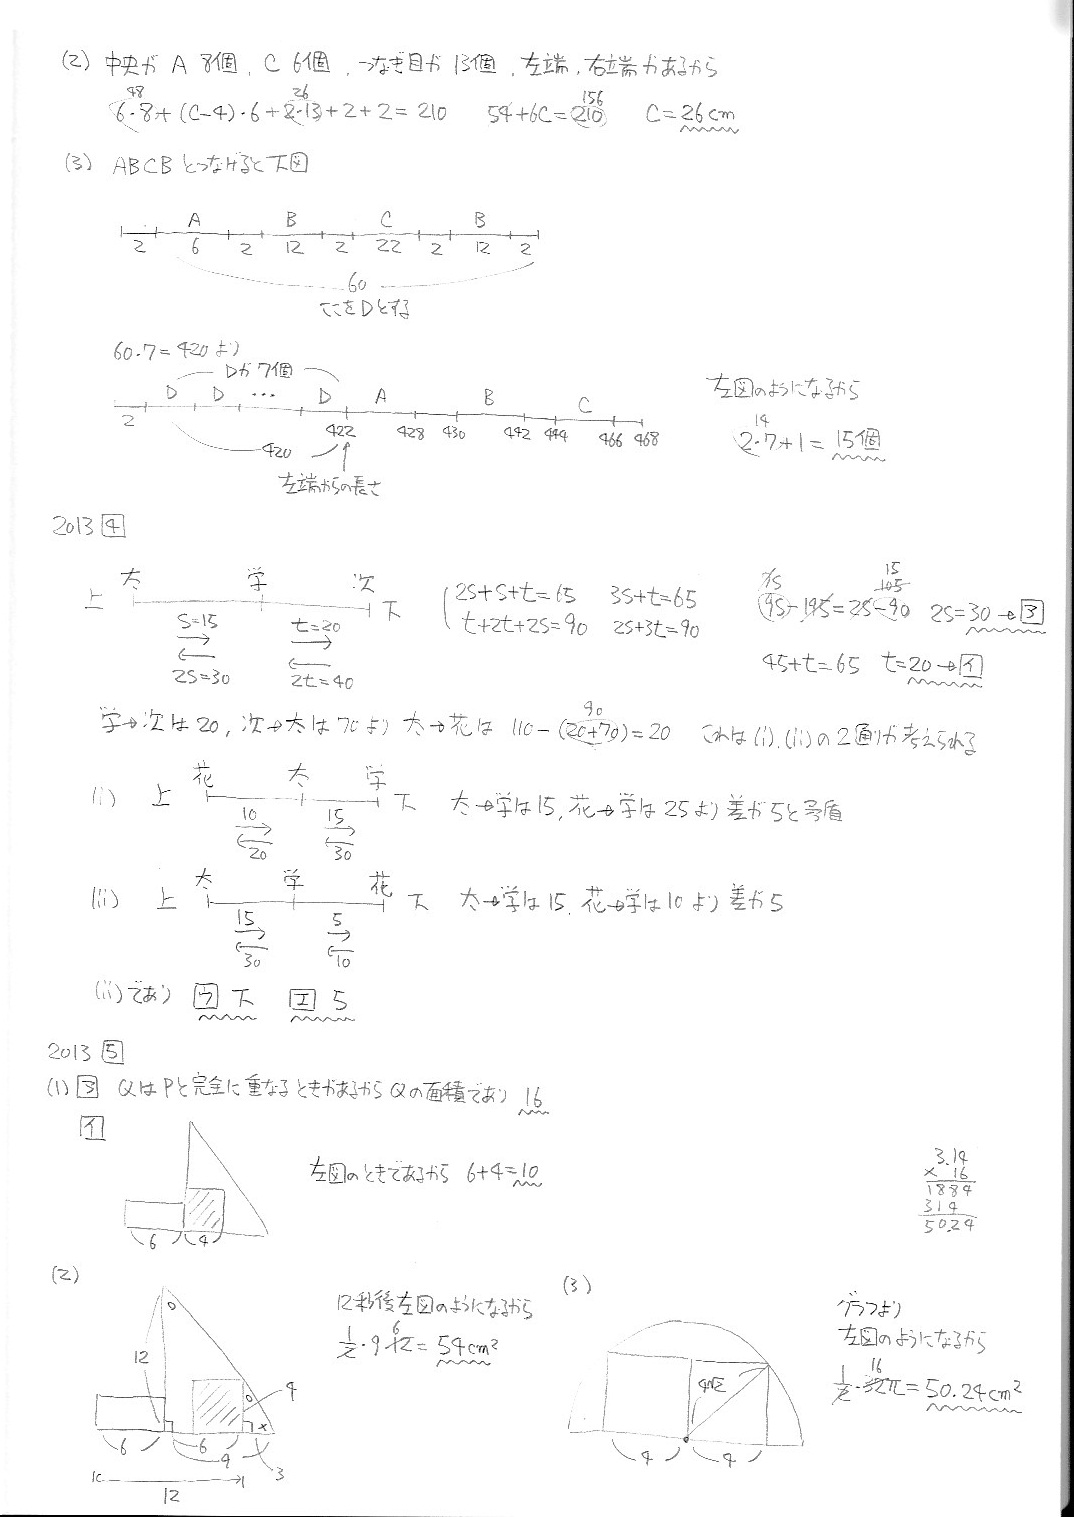 (2) 中央が A 8個, C 6個, つなぎ目が 13個, 左端, 右端があるから
48 26 156
6・8+(C-4)・6+2・13+2+2=210 54+6C=210 C=26cm
(3) ABCBとつなげると下図
A B C B
2 6 2 12 2 22 2 12 2
60
ここをDとする
60・7=420より
Dが7個
D D … D A B C
2 422 428 430 442 444 466 468
420
左端からの長さ
左図のようになるから
14
2・7+1=15個
2013 4
上 太 学 次 下
S=15 t=20
2S=30 2t=40
2S+S+t=65 3S+t=65
t+2t+2S=90 2S+3t=90
7S 15 105
9S-195=2S-90 2S=30→ア
45+t=65 t=20→イ
学→次は20, 次→太は70より 太→花は 110-(20+70)=20 これは(i),(ii)の2通りが考えられる
90
(i) 上 花 太 学 下 太→学は15, 花→学は25より差が5と矛盾
10 15
20 30
(ii) 上 太 学 花 下 太→学は15, 花→学は10より差が5
15 5
30 10
(ii)であり ウ 下 エ 5
2013 5
(1) ア QはPと完全に重なるときがあるからQの面積であり 16
イ
左図のときであるから 6+4=10
6 4
3.14
× 16
1884
314
50.24
(2)
12秒後左図のようになるから
1/2・9・12=54cm²
6
12 4
6 6 9 3
12
(3)
グラフより
左図のようになるから
16
1/2・32π=50.24cm²
4√2
4 4